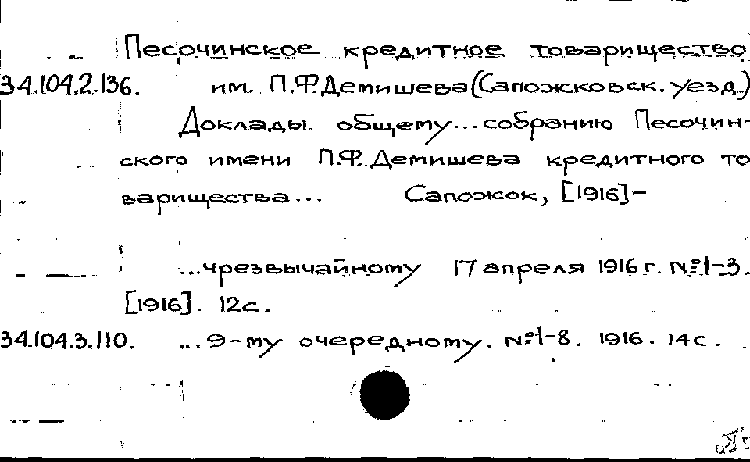 Песочинское кредитное товарищество
34.104.2.136. им. П.Ф.Демишева (Сапожковск. уезд.)
Доклады общему... собранию Песочин-
ского имени П.Ф.Демишева кредитного то
варищества... Сапожок, [1916]-
...чрезвычайному 17 апреля 1916 г. №1-3.
[1916]. 12с.
34.104.3.110. ...9-му очередному. №1-8. 1916. 14с.